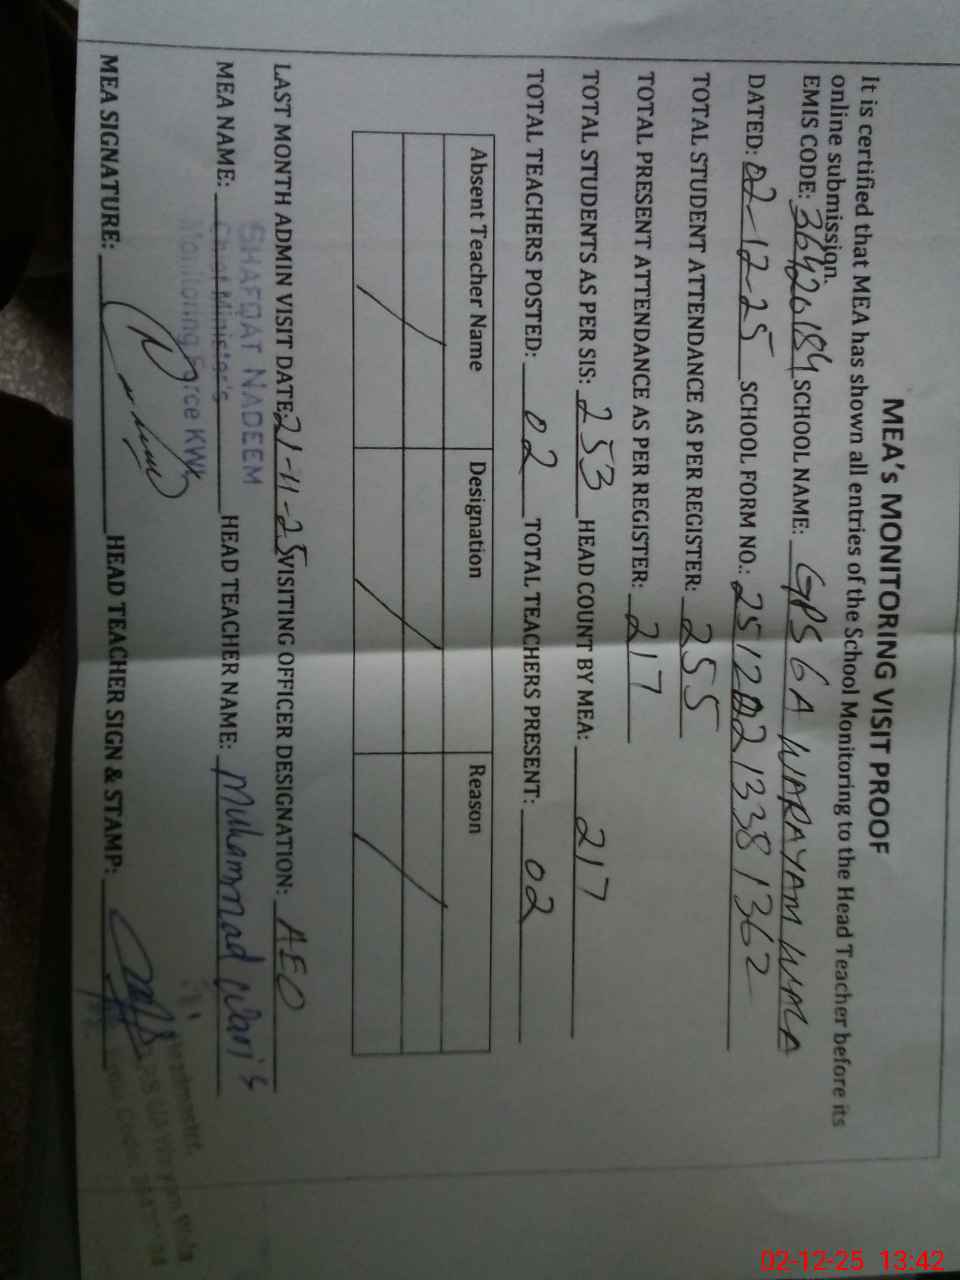 MEA's MONITORING VISIT PROOF
It is certified that MEA has shown all entries of the School Monitoring to the Head Teacher before its
online submission.
EMIS CODE: 36420184 SCHOOL NAME: GPS 6A WARAYAM WALA
DATED: 02-12-25 SCHOOL FORM NO.: 251202 1338 1362
TOTAL STUDENT ATTENDANCE AS PER REGISTER: 255
TOTAL PRESENT ATTENDANCE AS PER REGISTER: 217
TOTAL STUDENTS AS PER SIS: 253 HEAD COUNT BY MEA: 217
TOTAL TEACHERS POSTED: 02 TOTAL TEACHERS PRESENT: 02
Absent Teacher Name Designation Reason
LAST MONTH ADMIN VISIT DATE: 21-11-25 VISITING OFFICER DESIGNATION: AEO
SHAFQAT NADEEM
MEA NAME: Chief Minister's HEAD TEACHER NAME: Muhammad Waris
Monitoring Force KWL
Headmaster
MEA SIGNATURE: HEAD TEACHER SIGN & STAMP:
02-12-25 13:42